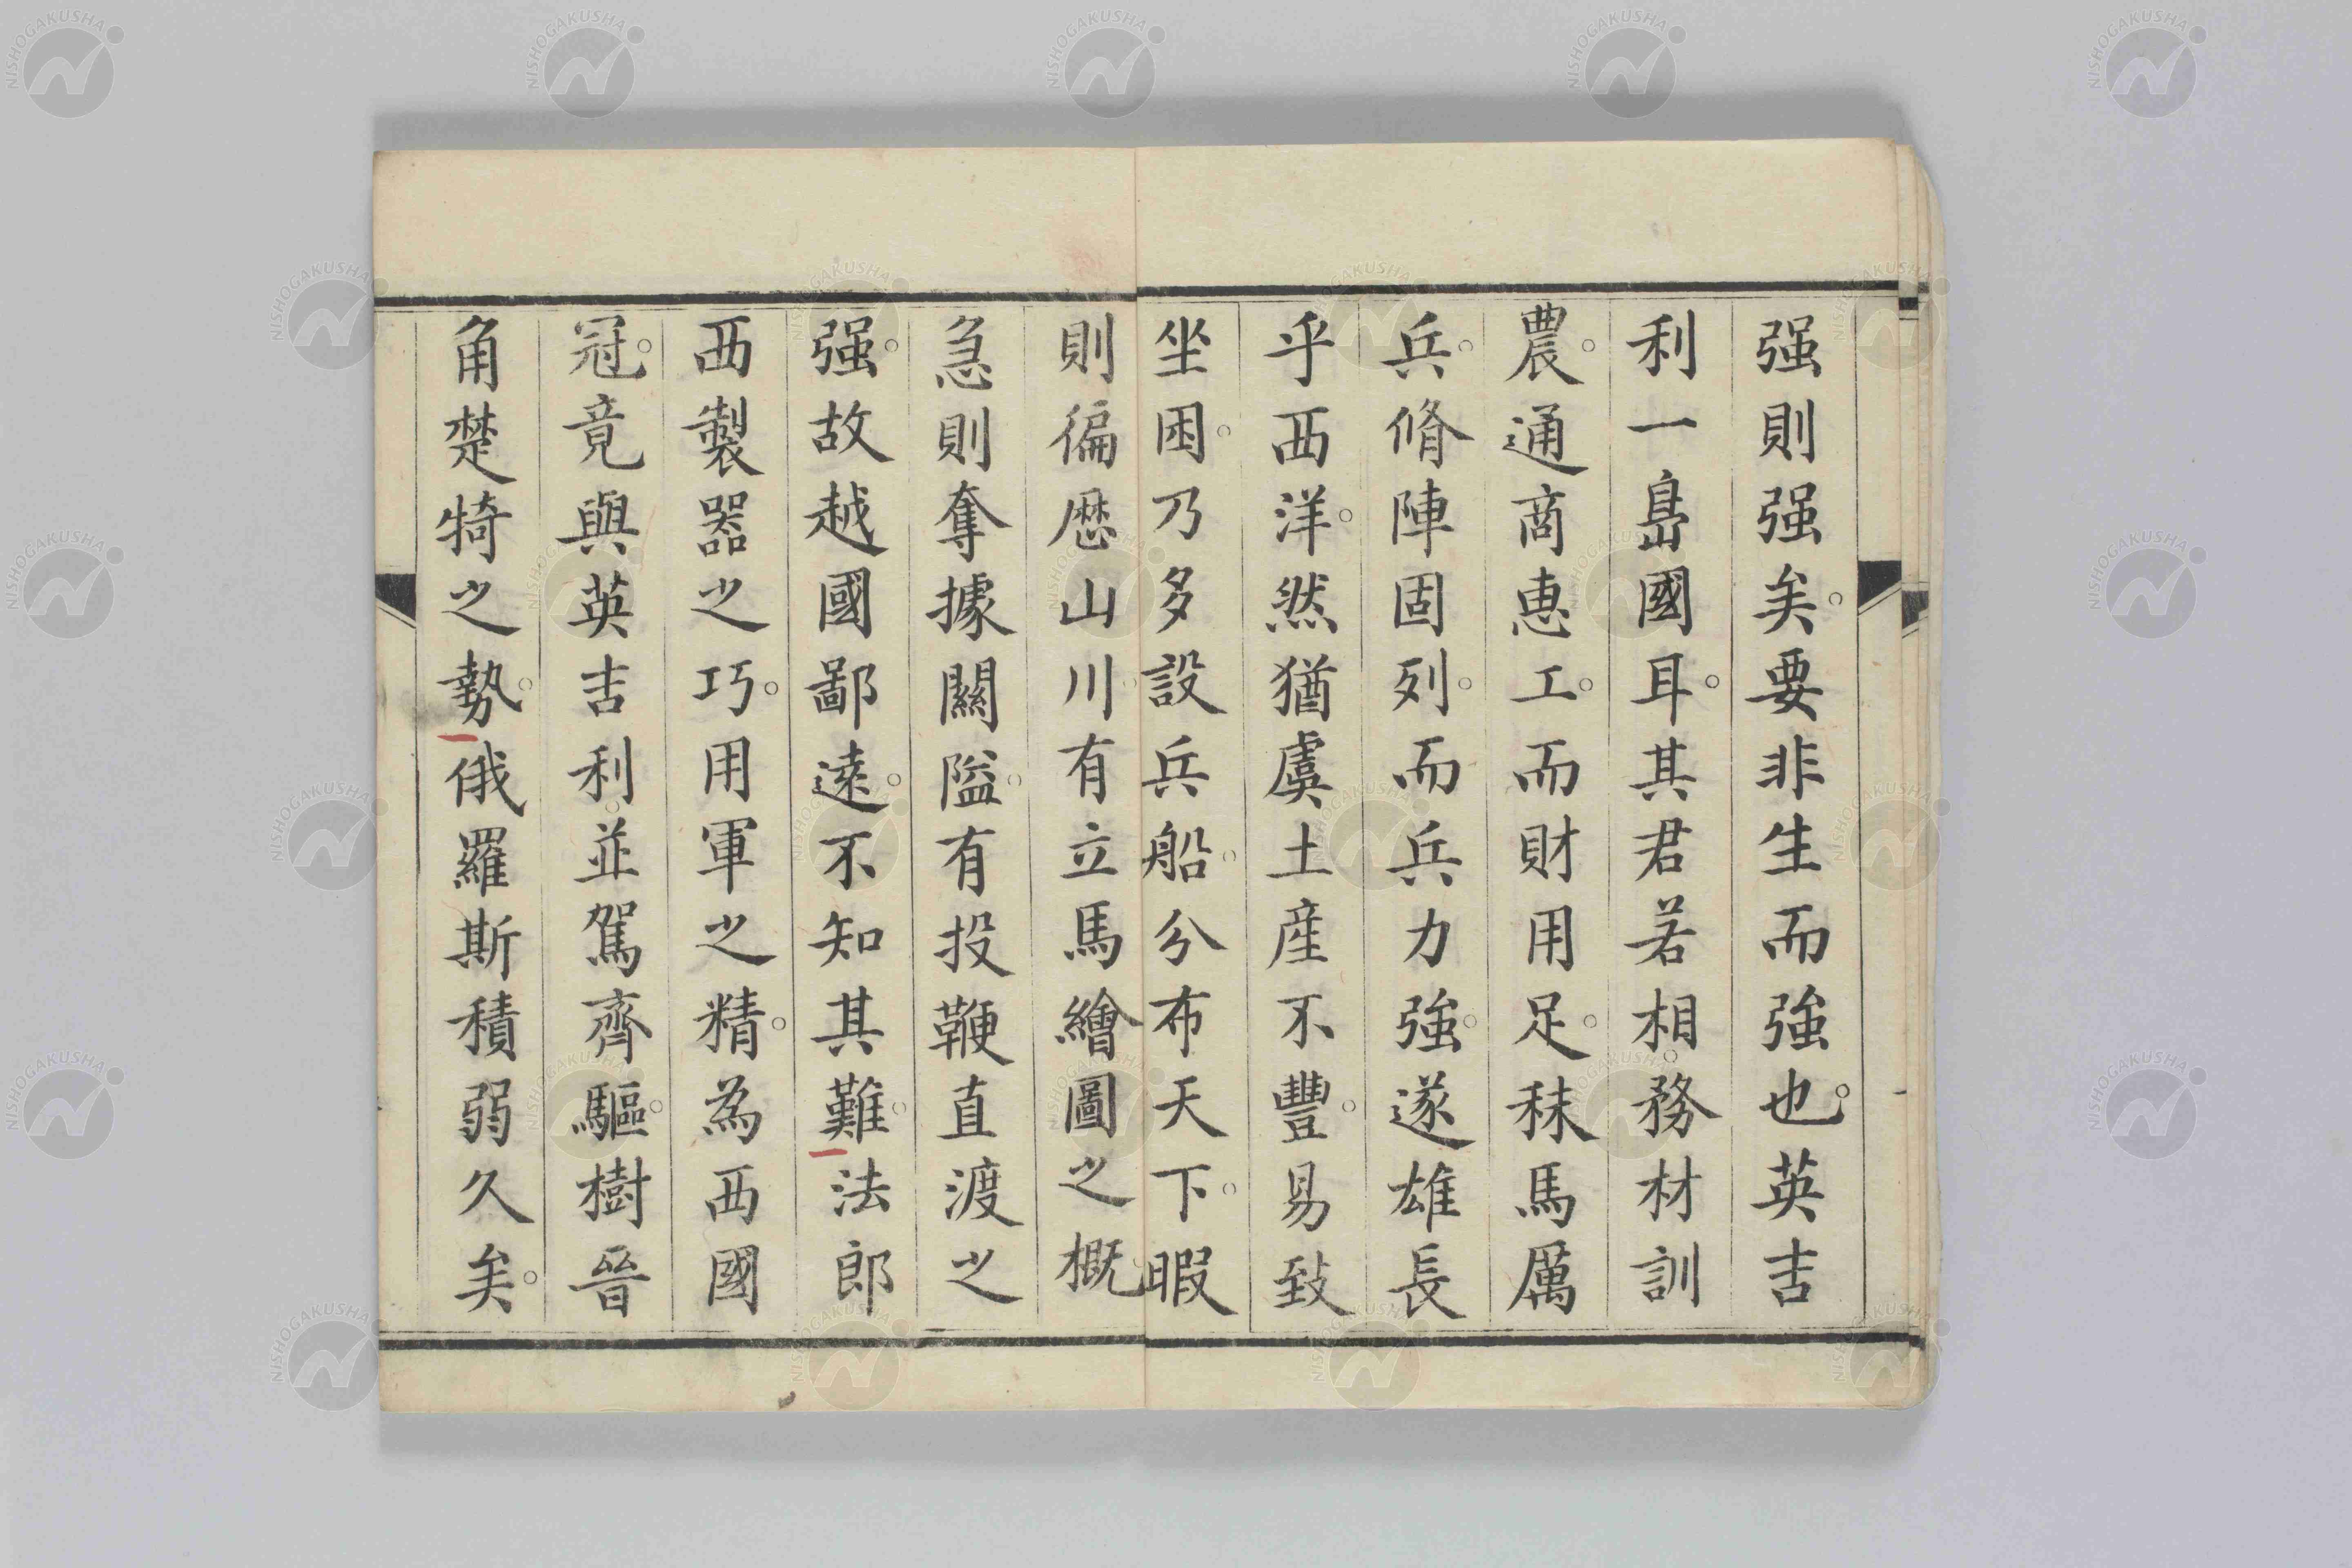 强則强矣。要非生而強也。英吉
利一島國耳。其君若相。務材訓
農。通商惠工。而財用足。秣馬厲
兵。脩陣固列。而兵力強。遂雄長
乎西洋。然猶虞土産不豐。易致
坐困。乃多設兵船。分布天下。暇
則徧歷山川。有立馬繪圖之概。
急則奪據關隘。有投鞭直渡之
强。故越國鄙遠。不知其難。法郎
西製器之巧。用軍之精。為西國
冠。竟與英吉利。並駕齊驅。樹晉
角楚犄之勢。俄羅斯積弱久矣。
NISHOGAKUSHA